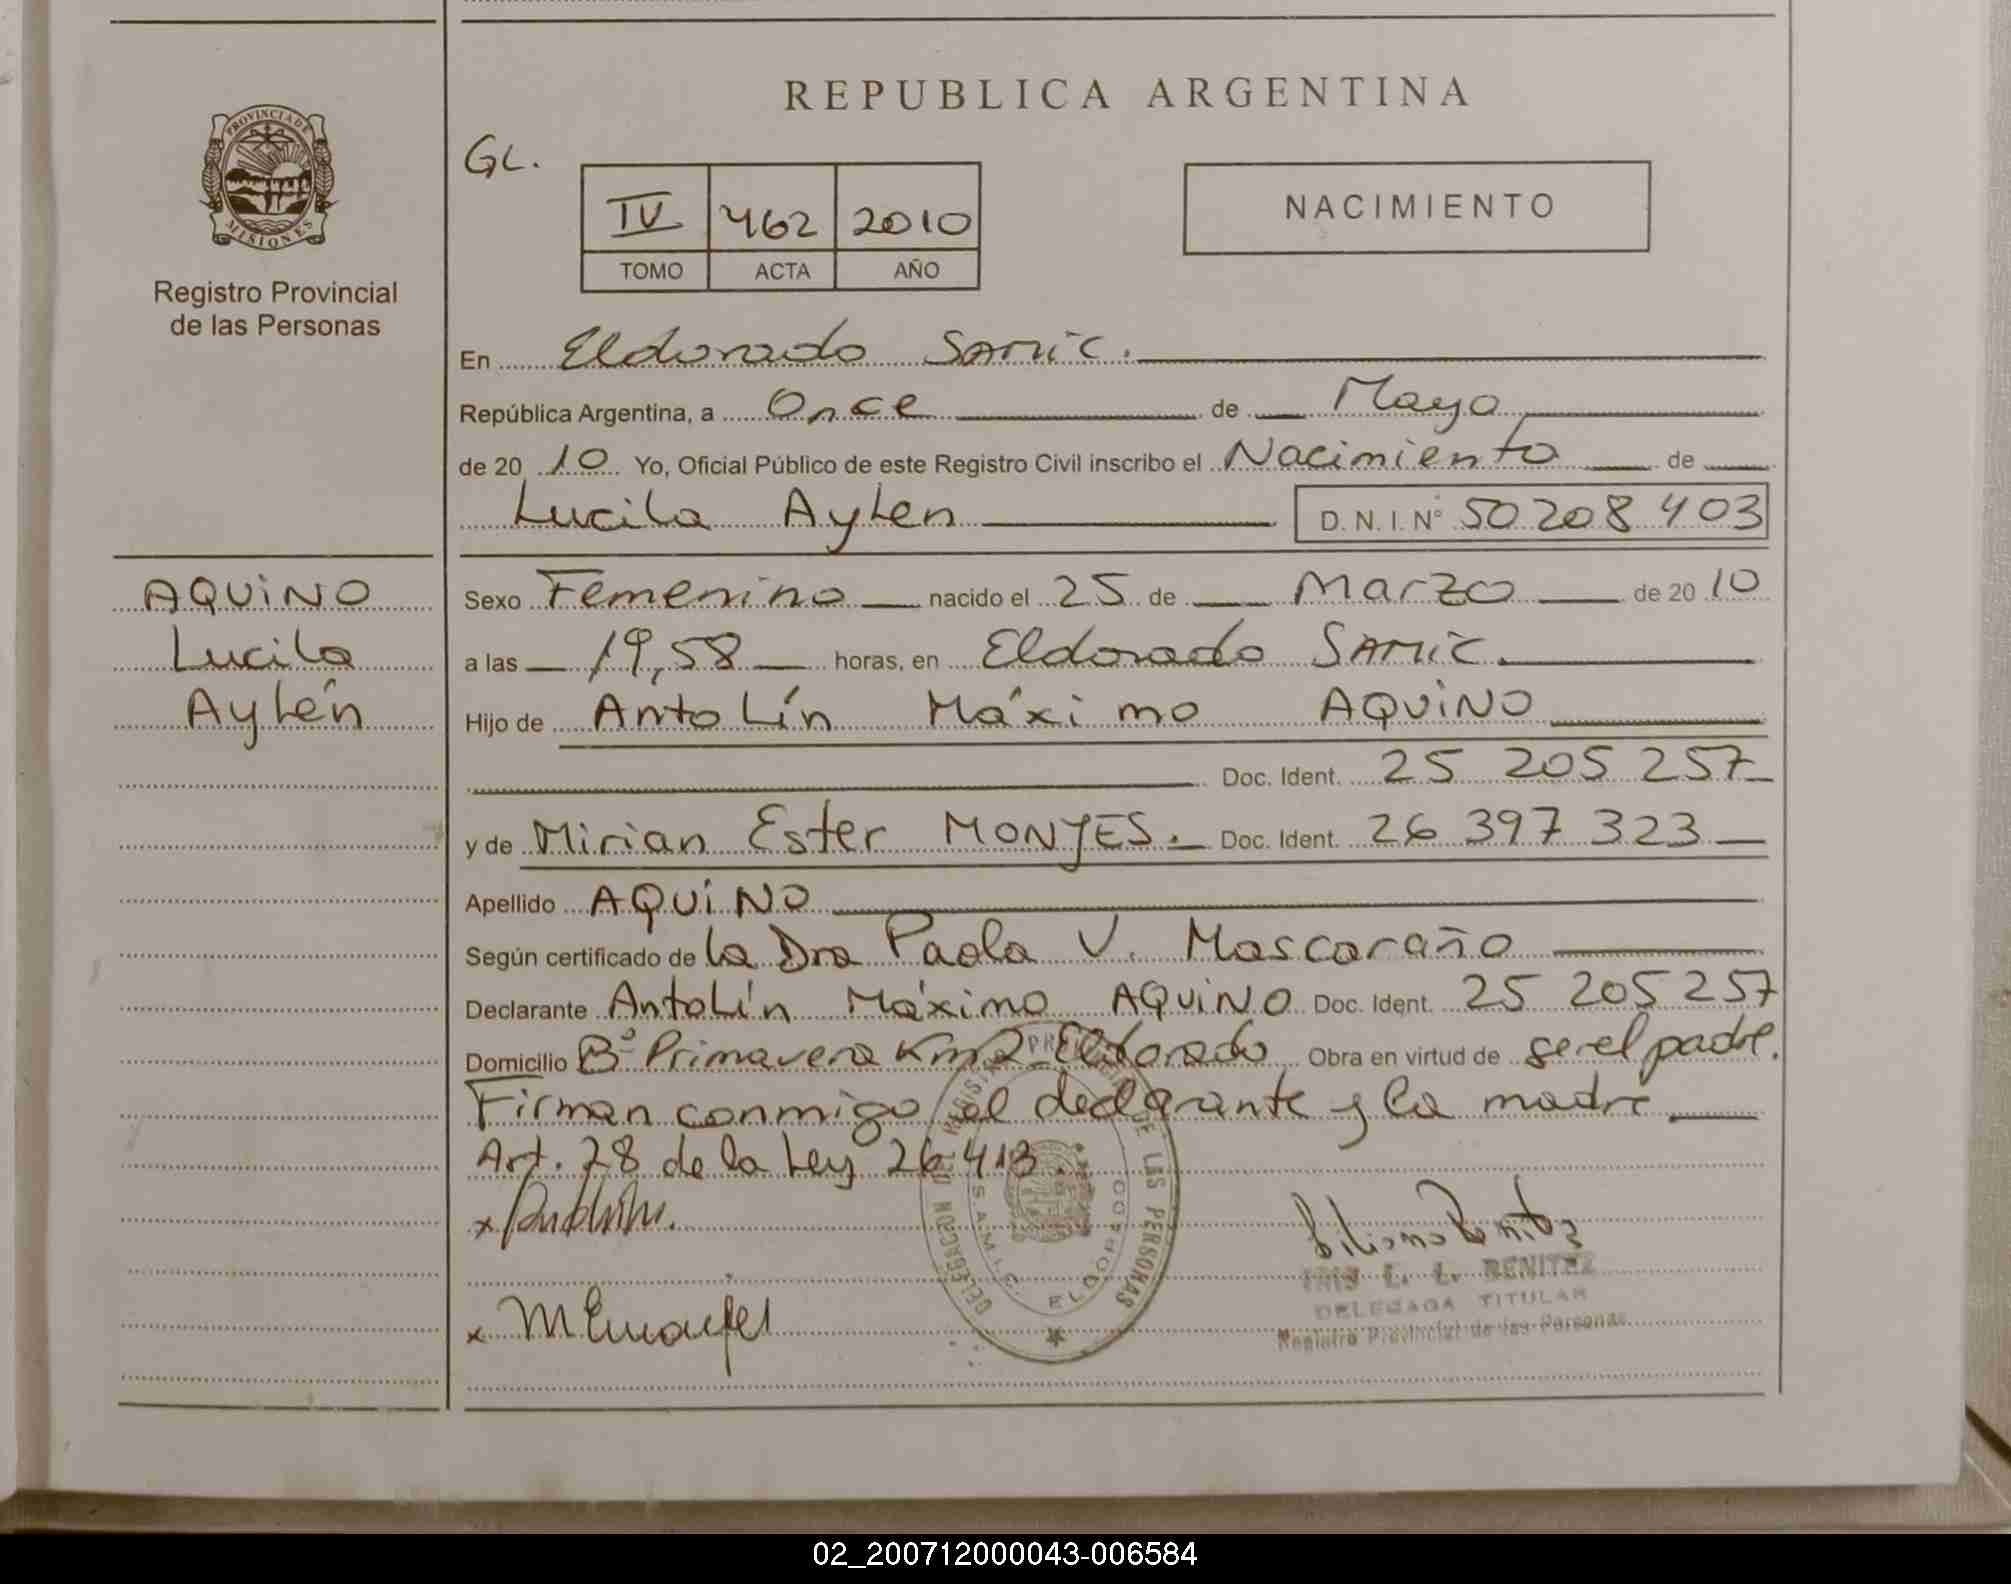 REPUBLICA ARGENTINA
PROVINCIA DE
MISIONES
Registro Provincial
de las Personas
GL.
IV 462 2010
TOMO ACTA AÑO
NACIMIENTO
En Eldorado SAMIC.
República Argentina, a Once de Mayo
de 20 10 Yo, Oficial Público de este Registro Civil inscribo el Nacimiento de
Lucila Aylen D. N. I. N° 50 208 403
AQUINO
Lucila
Aylén
Sexo Femenino nacido el 25 de Marzo de 20 10
a las 19,58 horas, en Eldorado SAMIC.
Hijo de Antolín Máximo AQUINO
Doc. Ident. 25 205 257
y de Mirian Ester MONJES. Doc. Ident. 26 397 323
Apellido AQUINO
Según certificado de la Dra Paola V. Mascaraño
Declarante Antolín Máximo AQUINO Doc. Ident. 25 205 257
Domicilio B° Primavera Km 2 Eldorado Obra en virtud de ser el padre.
Firman conmigo el declarante y la madre
Art. 28 de la Ley 26 413.
x
DELEGACION REGISTRO PROVINCIAL DE LAS PERSONAS
S.A.M.I.C. ELDORADO
Liliana Benitez
L. L. BENITEZ
DELEGADA TITULAR
Registro Provincial de las Personas
x
02_200712000043-006584